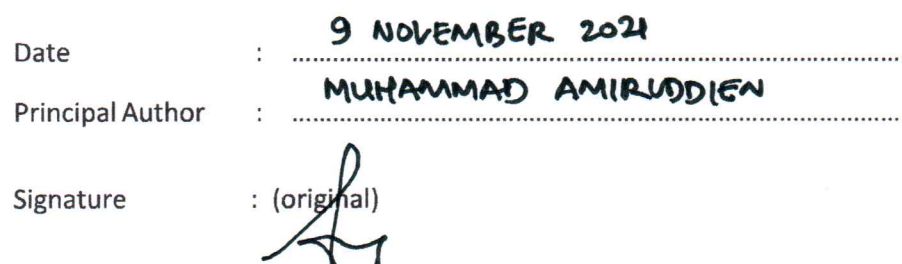 Date : 9 NOVEMBER 2021
Principal Author : MUHAMMAD AMIRUDDIEN
Signature : (original)